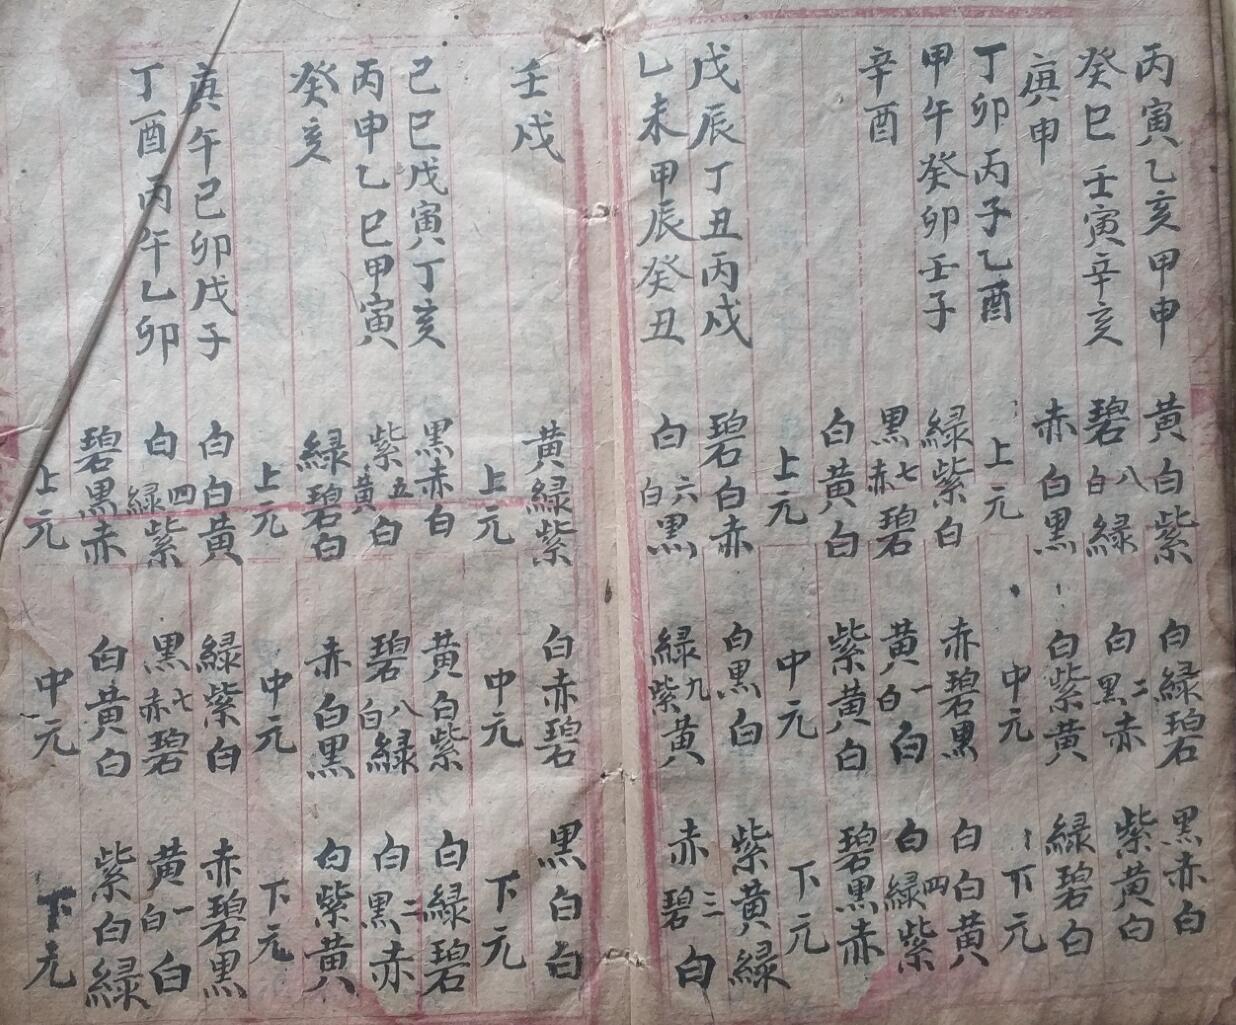 丙寅乙亥甲申 黄白紫 白緑碧 黒赤白
癸巳壬寅辛亥 碧白八緑 白黒二赤 紫黄白
庚申 赤白黒 白紫黄 緑碧白
上元 中元 下元
丁卯丙子乙酉 緑紫白 赤碧黒 白白黄
甲午癸卯壬子 黒赤七碧 黄白一白 白緑四紫
辛酉 白黄白 紫黄白 碧黒赤
上元 中元 下元
戊辰丁丑丙戌 碧白赤 白黒白 紫黄緑
乙未甲辰癸丑 白白六黒 緑紫九黄 赤碧三白
壬戌 黄緑紫 白赤碧 黒白白
上元 中元 下元
己巳戊寅丁亥 黒赤白 黄白紫 白緑碧
丙申乙巳甲寅 紫黄五白 碧白八緑 白黒二赤
癸亥 緑碧白 赤白黒 白紫黄
上元 中元 下元
庚午己卯戊子 白白黄 緑紫白 赤碧黒
丁酉丙午乙卯 白緑四紫 黒赤七碧 黄白一白
碧黒赤 白黄白 紫白緑
上元 中元 下元